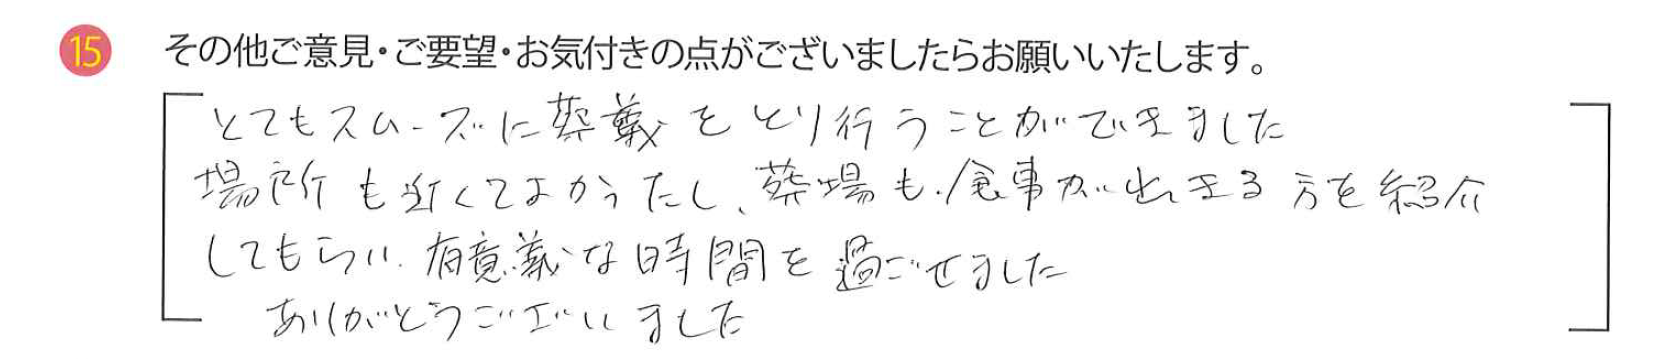 15 その他ご意見・ご要望・お気付きの点がございましたらお願いいたします。
とてもスムーズに葬儀をとり行うことができました
場所も近くてよかったし、葬場も食事が出きる方を紹介
してもらい、有意義な時間を過ごせました
ありがとうございました